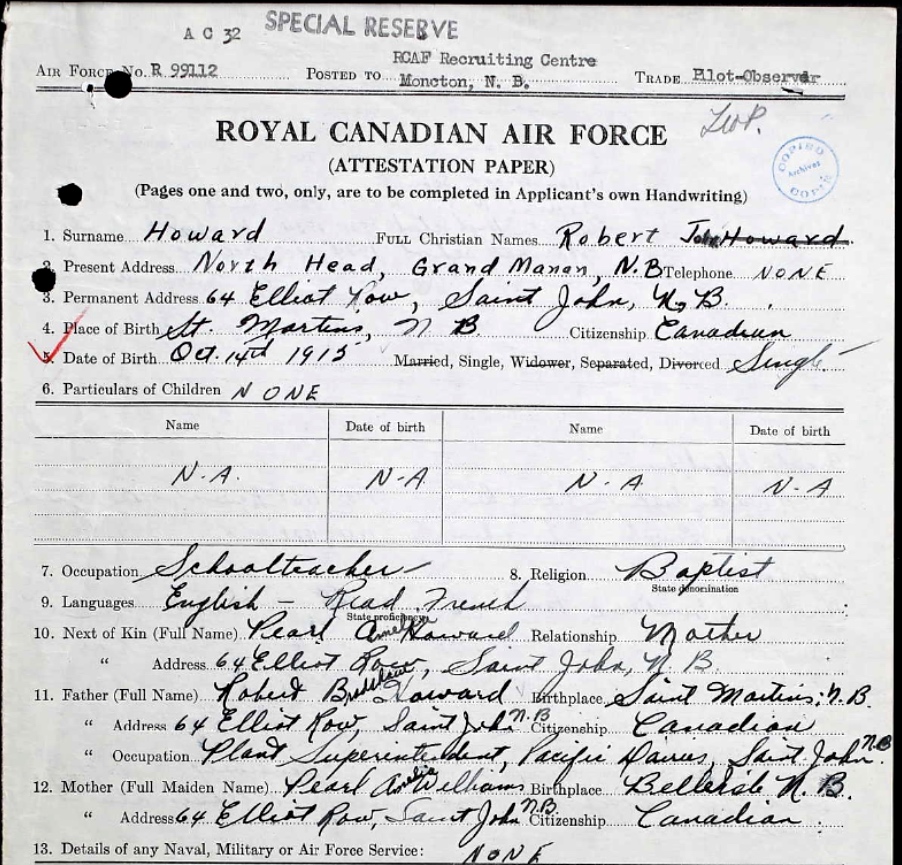 A C 32 SPECIAL RESERVE
RCAF Recruiting Centre
AIR FORCE No. R 99112 POSTED TO Moncton, N. B. TRADE Pilot-Observer
ROYAL CANADIAN AIR FORCE
(ATTESTATION PAPER)
COPIED Archives
(Pages one and two, only, are to be completed in Applicant's own Handwriting)
1. Surname Howard FULL Christian Names Robert John Howard
2. Present Address North Head, Grand Manan, N.B Telephone NONE
3. Permanent Address 64 Elliot Row, Saint John, N.B.
4. Place of Birth St. Martins, N B Citizenship Canadian
5. Date of Birth Oct. 14th 1915 Married, Single, Widower, Separated, Divorced Single
6. Particulars of Children NONE
Name Date of birth Name Date of birth
N.A. N-A N-A N-A
7. Occupation Schoolteacher 8. Religion Baptist
State denomination
9. Languages English - Read French
State proficiency
10. Next of Kin (Full Name) Pearl Howard Relationship Mother
" Address 64 Elliot Row, Saint John, N B.
11. Father (Full Name) Robert Howard Birthplace Saint Martins, N.B.
" Address 64 Elliot Row, Saint John N.B Citizenship Canadian
" Occupation Plant Superintendent, Pacific Saint John N.B.
12. Mother (Full Maiden Name) Pearl Amelia Williams Birthplace N. B.
" Address 64 Elliot Row, Saint John N.B. Citizenship Canadian
13. Details of any Naval, Military or Air Force Service: NONE